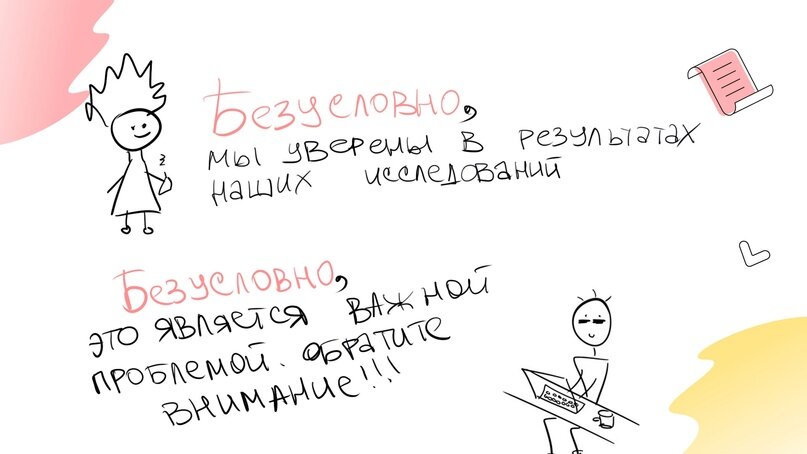 Безусловно,
мы уверены в результатах
наших исследований
Безусловно,
это является важной
проблемой. Обратите
внимание!!!